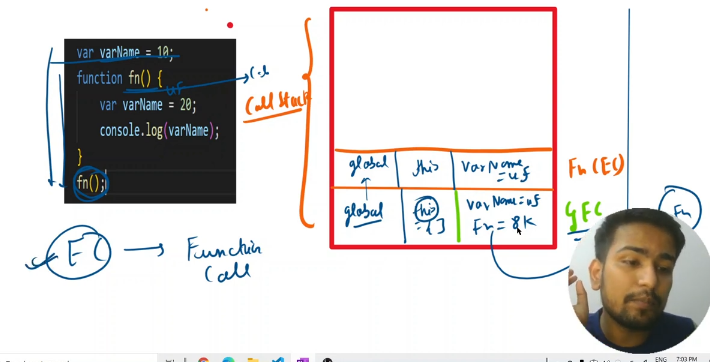 var varName = 10;
function fn() {
var varName = 20;
console.log(varName);
}
fn();
uf
Call Stack
global this varName = uf
Fn (EC)
global this = {} varName = uf
Fn = 8K
GEC
Fn
EC → Function Call
ENG 7:03 PM